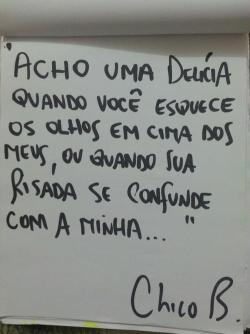 "ACHO UMA DELÍCIA
QUANDO VOCÊ ESQUECE
OS OLHOS EM CIMA DOS
MEUS, OU QUANDO SUA
RISADA SE CONFUNDE
COM A MINHA..."
CHICO B.